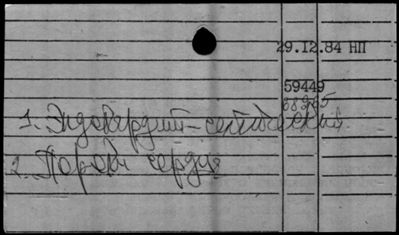 29.12.84 НП
59449
88965
1. Эндокардит – септический.
2. Пороки сердца